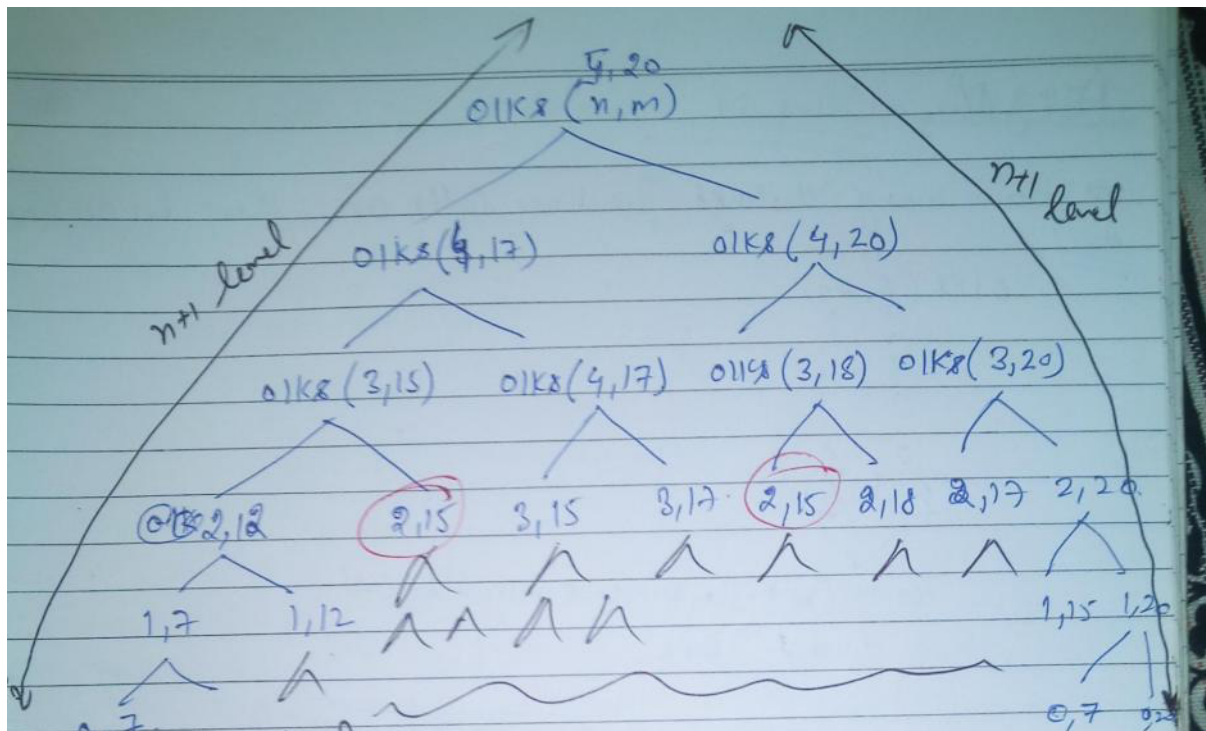 5,20
01KS (n,m)
n+1 level
n+1 level
01KS(4,17) 01KS(4,20)
01KS(3,15) 01KS(4,17) 01KS(3,18) 01KS(3,20)
2,12 2,15 3,15 3,17 2,15 2,18 2,17 2,20
1,7 1,12 1,15 1,20
7 0,7 0,20